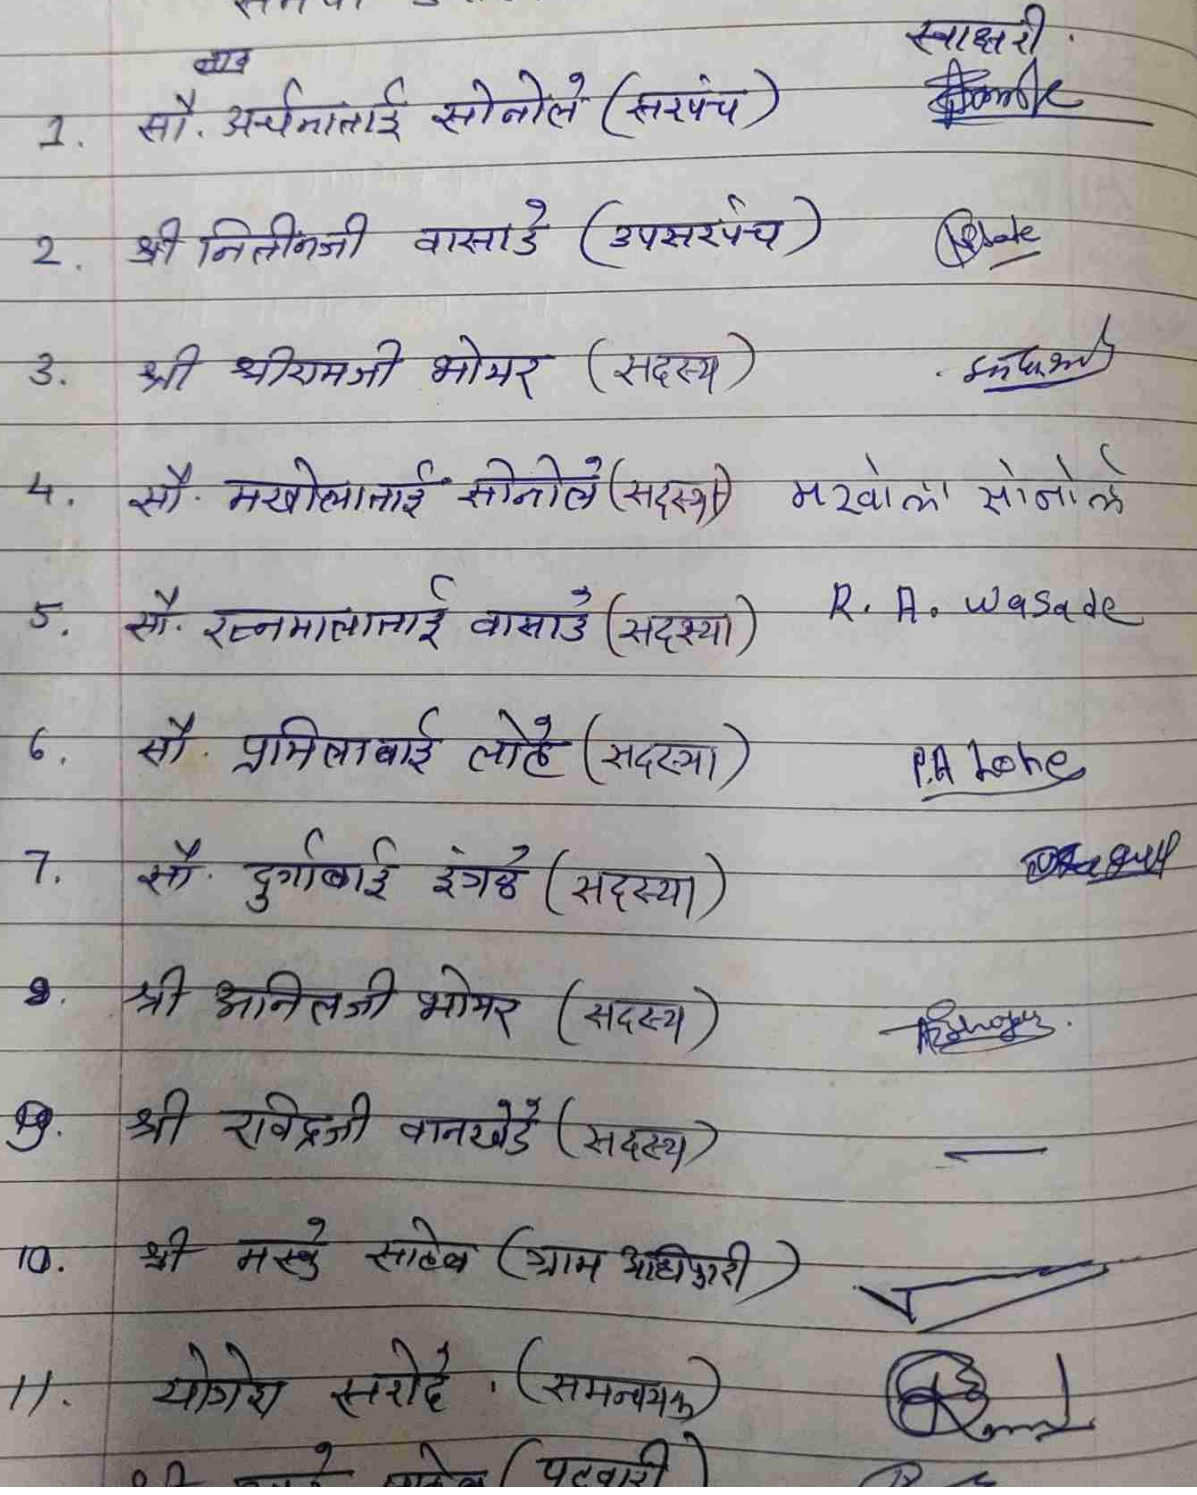 स्वाक्षरी.
नाव
1. सौ. अर्चनाताई सोनोले (सरपंच)
2. श्री नितीनजी वासाडे (उपसरपंच)
3. श्री श्रीरामजी भोयर (सदस्य)
4. सौ. मखोलाताई सोनोले (सदस्या) मखोला सोनोले
5. सौ. रत्नमालाताई वासाडे (सदस्या) R. A. Wasade
6. सौ. प्रामिलाबाई लोहे (सदस्या) P.A Lohe
7. सौ. दुर्गाबाई इंगळे (सदस्या)
8. श्री अनिलजी भोयर (सदस्य)
9. श्री रविंद्रजी वानखेडे (सदस्य) —
10. श्री मस्के साहेब (ग्राम अधिकारी)
11. योगेश सरोदे. (समन्वयक)
श्री साहेब (पटवारी)